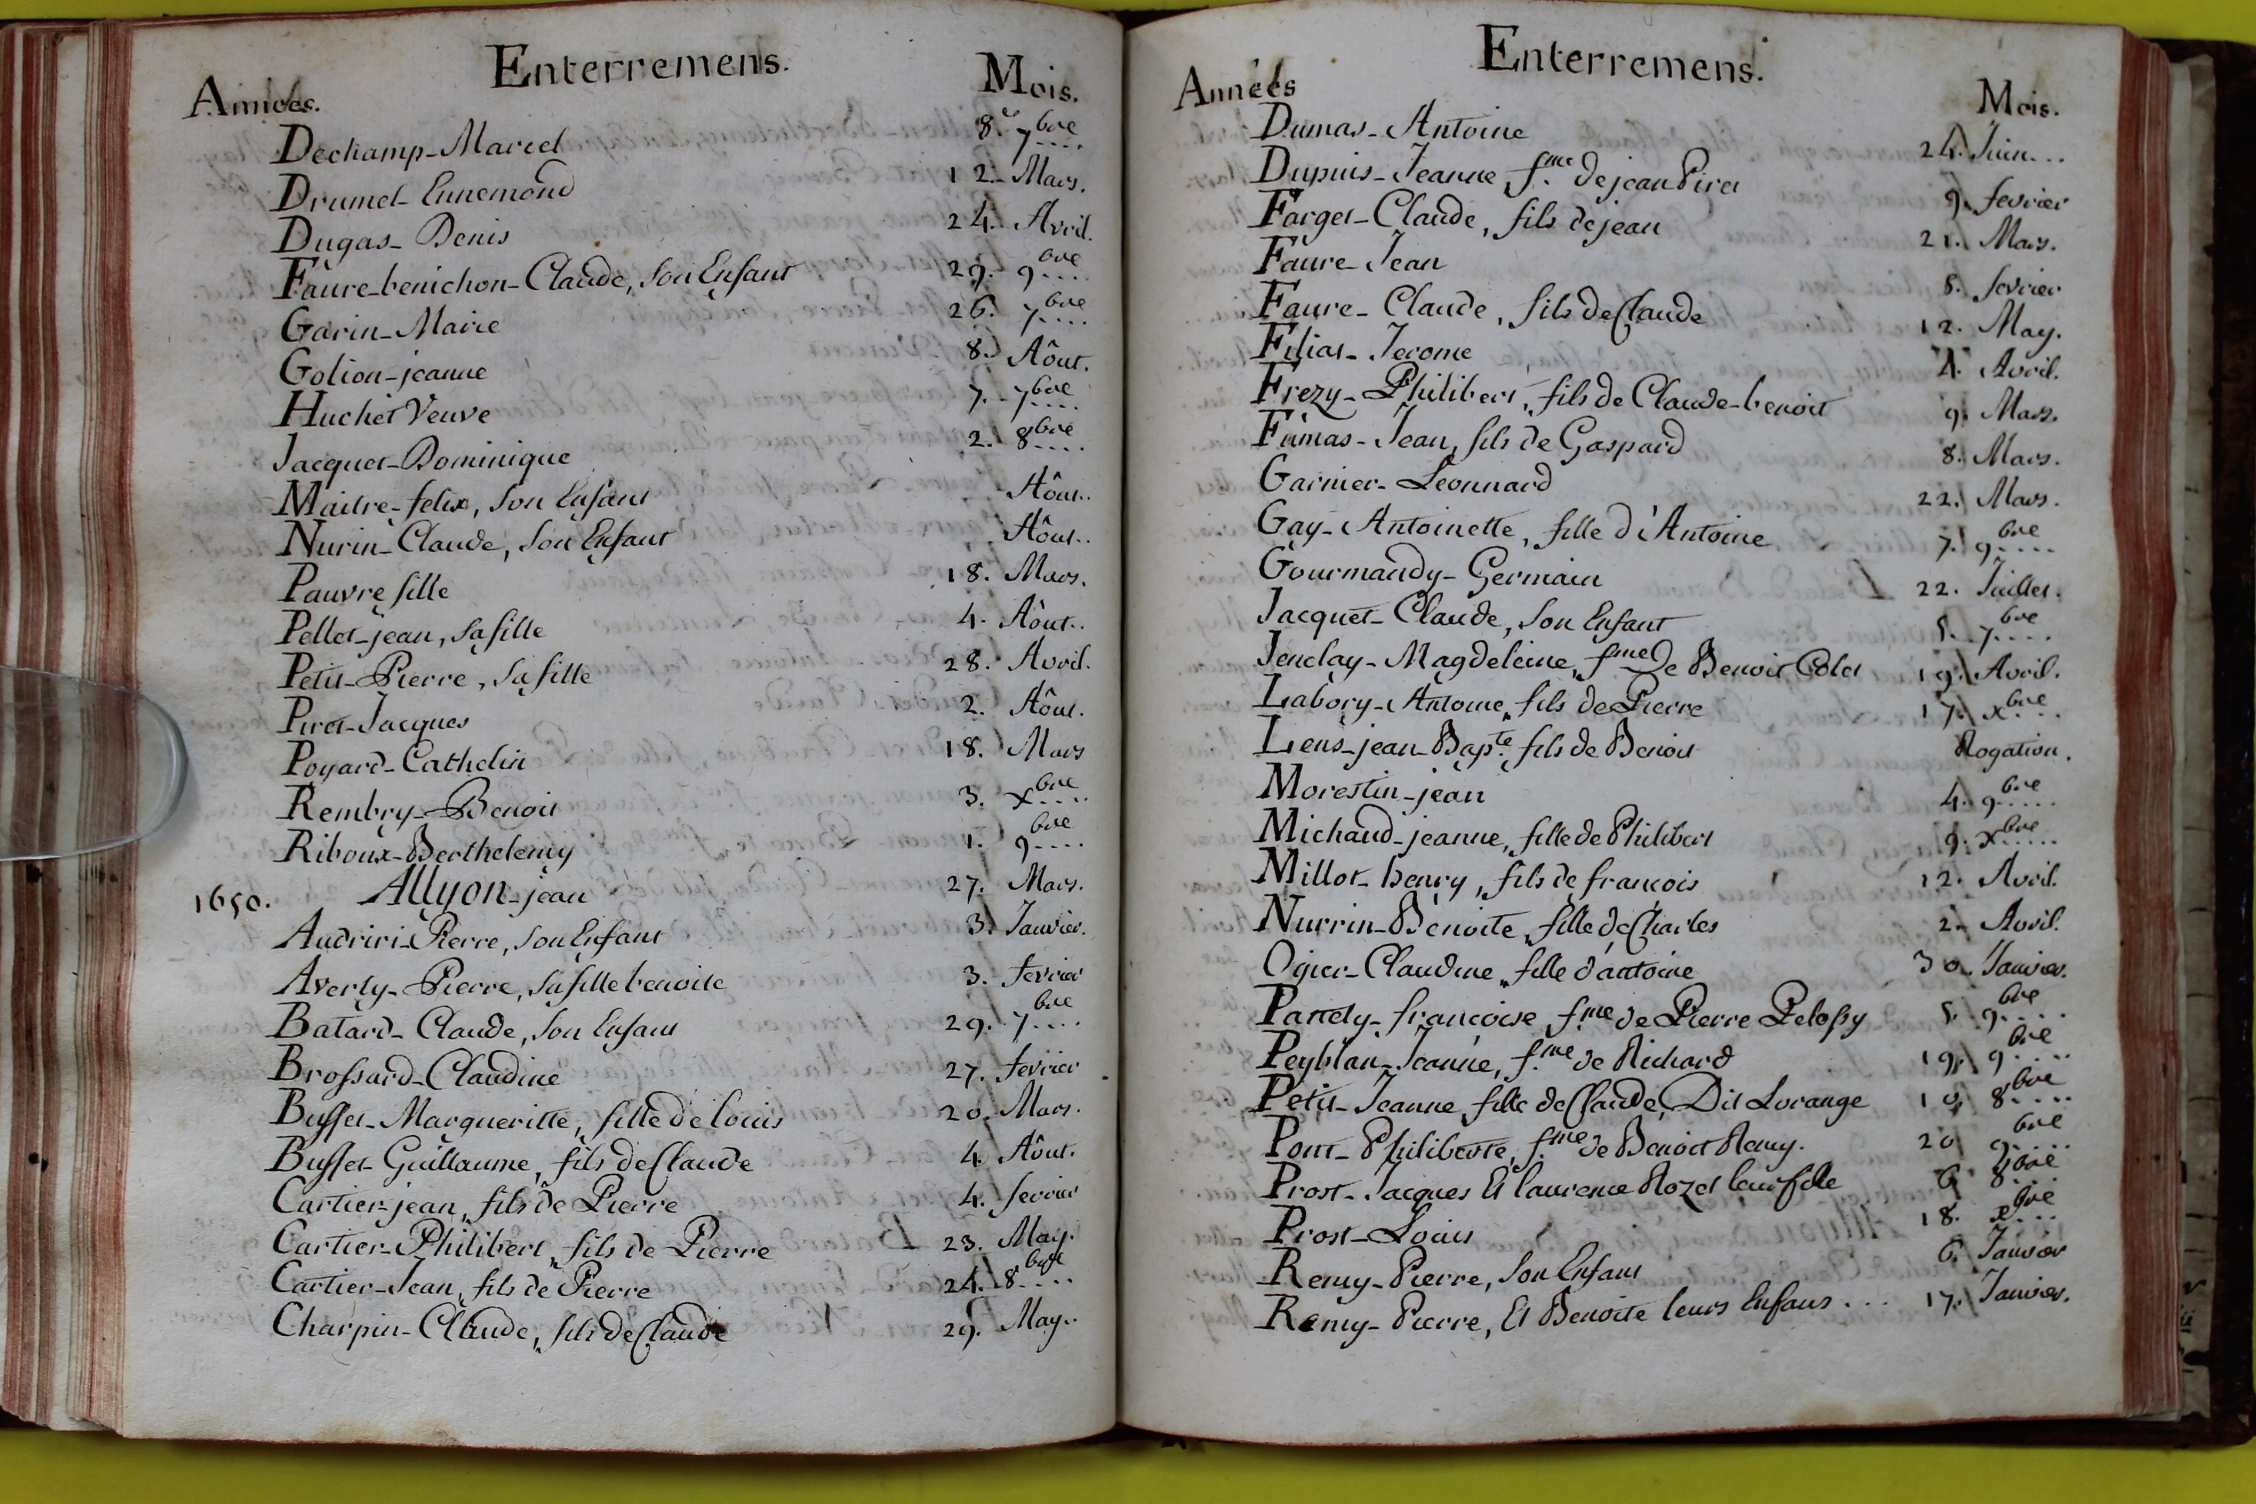 Enterremens.
Années. Mois.
Dechamp-Marcel 8. 7bre
Drumel-Ennemond 12. Mars.
Dugas-Denis 24. Avril.
Faure-benichon-Claude, son Enfant 29. 9bre
Garin-Marie 26. 7bre
Golion-jeanne 8. Aôut.
Huchet Veuve 7. 7bre
Jacquet-Dominique 2. 8bre
Maitre-felix, son Enfant Aôut..
Nurin-Claude, son Enfant Aôut..
Pauvre fille 18. Mars.
Pellet-jean, sa fille 4. Aôut..
Petit-Pierre, sa fille 28. Avril.
Piret-Jacques 2. Aôut.
Poyard-Cathelin 18. Mars
Rembry-Benoit 3. xbre
Riboux-Berthelemy 1. 9bre
1650. Allyon-jean 27. Mars.
Audriri-Pierre, son Enfant 3. Janvier.
Averly-Pierre, sa fille benoite 3. fevrier
Batard-Claude, son Enfant 29. 7bre
Brossard-Claudine 27. fevrier
Buffet-Margueritte, fille de louis 20. Mars.
Buffet-Guillaume, fils de Claude 4. Aôut.
Cartier-jean, fils de Pierre 4. fevrier
Cartier-Philibert, fils de Pierre 23. May.
Cartier-Jean, fils de Pierre 24. 8bre
Charpin-Claude, fils de Claude 29. May..
Enterremens.
Années Mois.
Dumas-Antoine 24. Juin...
Dupuis-Jeanne, fme de jean Piret 9. fevrier
Farget-Claude, fils de jean 21. Mars.
Faure-Jean 8. fevrier
Faure-Claude, fils de Claude 12. May.
Filiat-Jerome 4. Avril.
Frezy-Philibert, fils de Claude-benoit 9. Mars.
Fumas-Jean, fils de Gaspard 8. Mars.
Garnier-Leonnard 22. Mars.
Gay-Antoinette, fille d'Antoine 7. 9bre
Gourmandy-Germain 22. Juillet.
Jacquet-Claude, son Enfant 5. 7bre
Jenclay-Magdeleine, fme de Benoit Colet 19. Avril.
Labory-Antoine, fils de Pierre 17. xbre
Lens-jean-Bapte fils de Benoit Rogation.
Morestin-jean 4. 9bre
Michaud-jeanne, fille de Philibert 9. xbre
Millot-henry, fils de francois 12. Avril.
Nurrin-Benoite, fille de Charles 2. Avril.
Ogier-Claudine, fille d'antoine 30. Janvier.
Panety-francoise, fme de Pierre Pelossy 5. 9bre
Peyblan-Jeanne, fme de Richard 19. 9bre
Petit-Jeanne, fille de Claude, Dit Lorange 10. 8bre
Pont-Philiberte, fme de Benoit Remy. 20 9bre
Prost-Jacques Et laurence Rozet leur fille 6 8bre
Prost-Louis 18. xbre
Remy-Pierre, son Enfant 6. Janvier
Remy-Pierre, Et Benoite leurs Enfans... 17. Janvier.